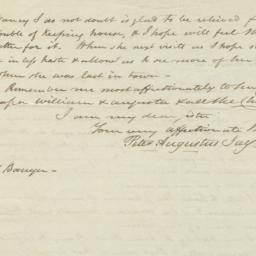 Nancy I do not doubt is glad to be relieved f
ouble of keeping house, & I hope will feel th
etter for it. When she next visits us I hope s
e in less haste & allow us to see more of her
when she was last in town—
Remember me most affectionately to
William & Augusta & all the
I am my dear, ister
Your very affectionate
Peter Augustus Jay
Banyer—